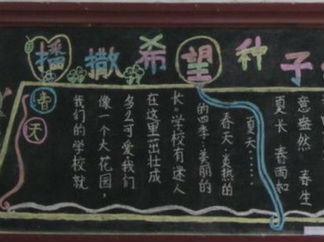 播撒希望种子
春天
我们的学校就
像一个大花园,
多么可爱,我们
在这里茁壮成
长。学校有迷人
的四季:美丽的
春天、炎热的
夏天……
意盎然 春生
夏长 春雨如